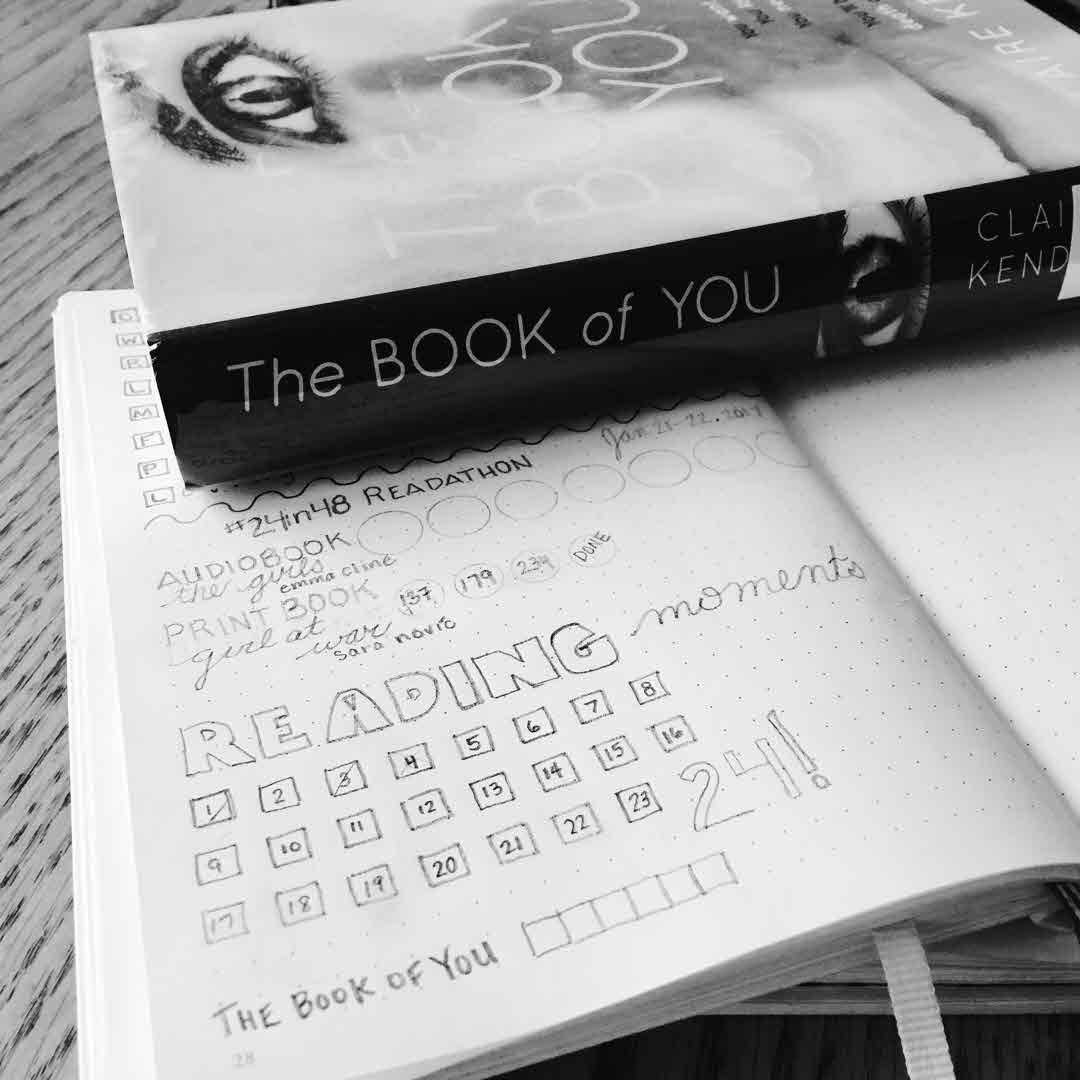 THE
BOOK
YOU
The BOOK of YOU
CLAI
KEND
W
L
M
F
P
L
Jan 21-22, 2017
#24in48 READATHON
AUDIOBOOK
the girls
emma cline
PRINT BOOK 137 179 234 DONE
girl at war
sara novic
READING moments
1 2 3 4 5 6 7 8
9 10 11 12 13 14 15 16
17 18 19 20 21 22 23 24!
THE BOOK OF YOU
28